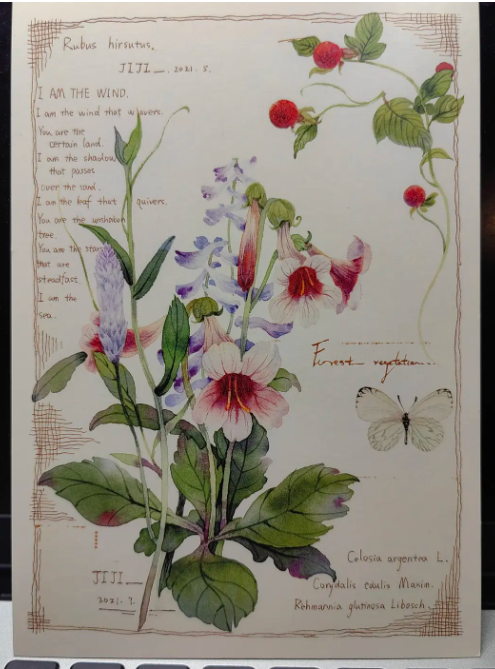 Rubus hirsutus.
JIJI__. 2021. 5.
I AM THE WIND.
I am the wind that wavers.
You are the
certain land.
I am the shadow
that passes
over the sand.
I am the leaf that quivers.
You are the unshaken
tree.
You are the stars
that are
steadfast,
I am the
sea..
Forest vegetation...
JIJI__
2021. 9.
Celosia argentea L.
Corydalis edulis Maxim.
Rehmannia glutinosa Libosch.